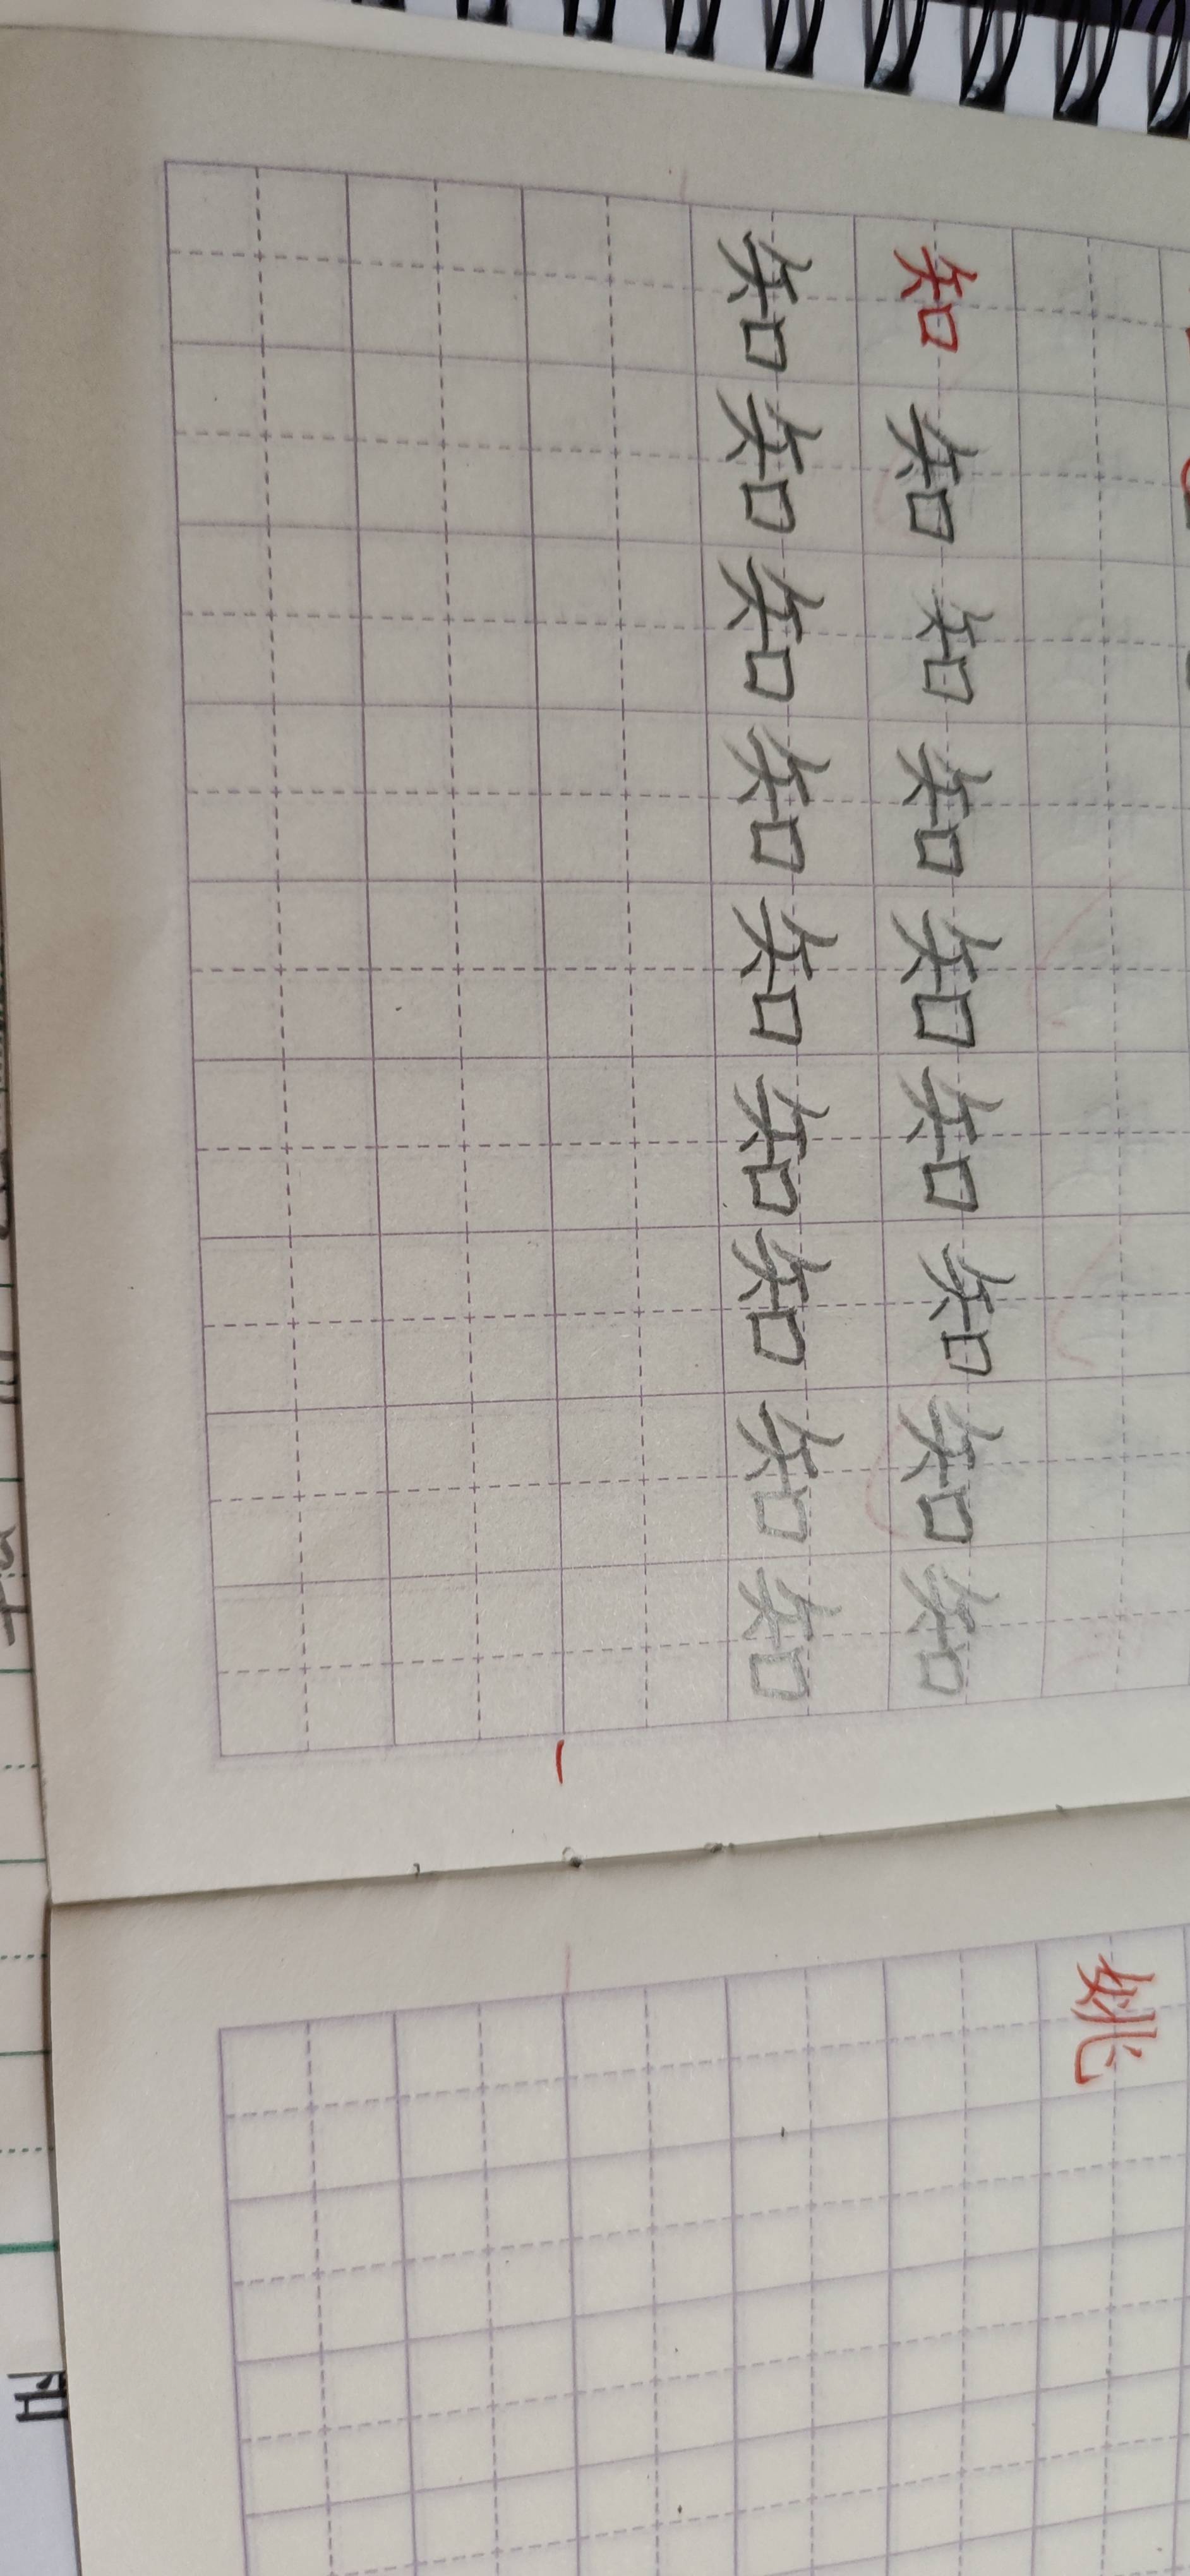 知知知知知知知知知
知知知知知知知知知
姚